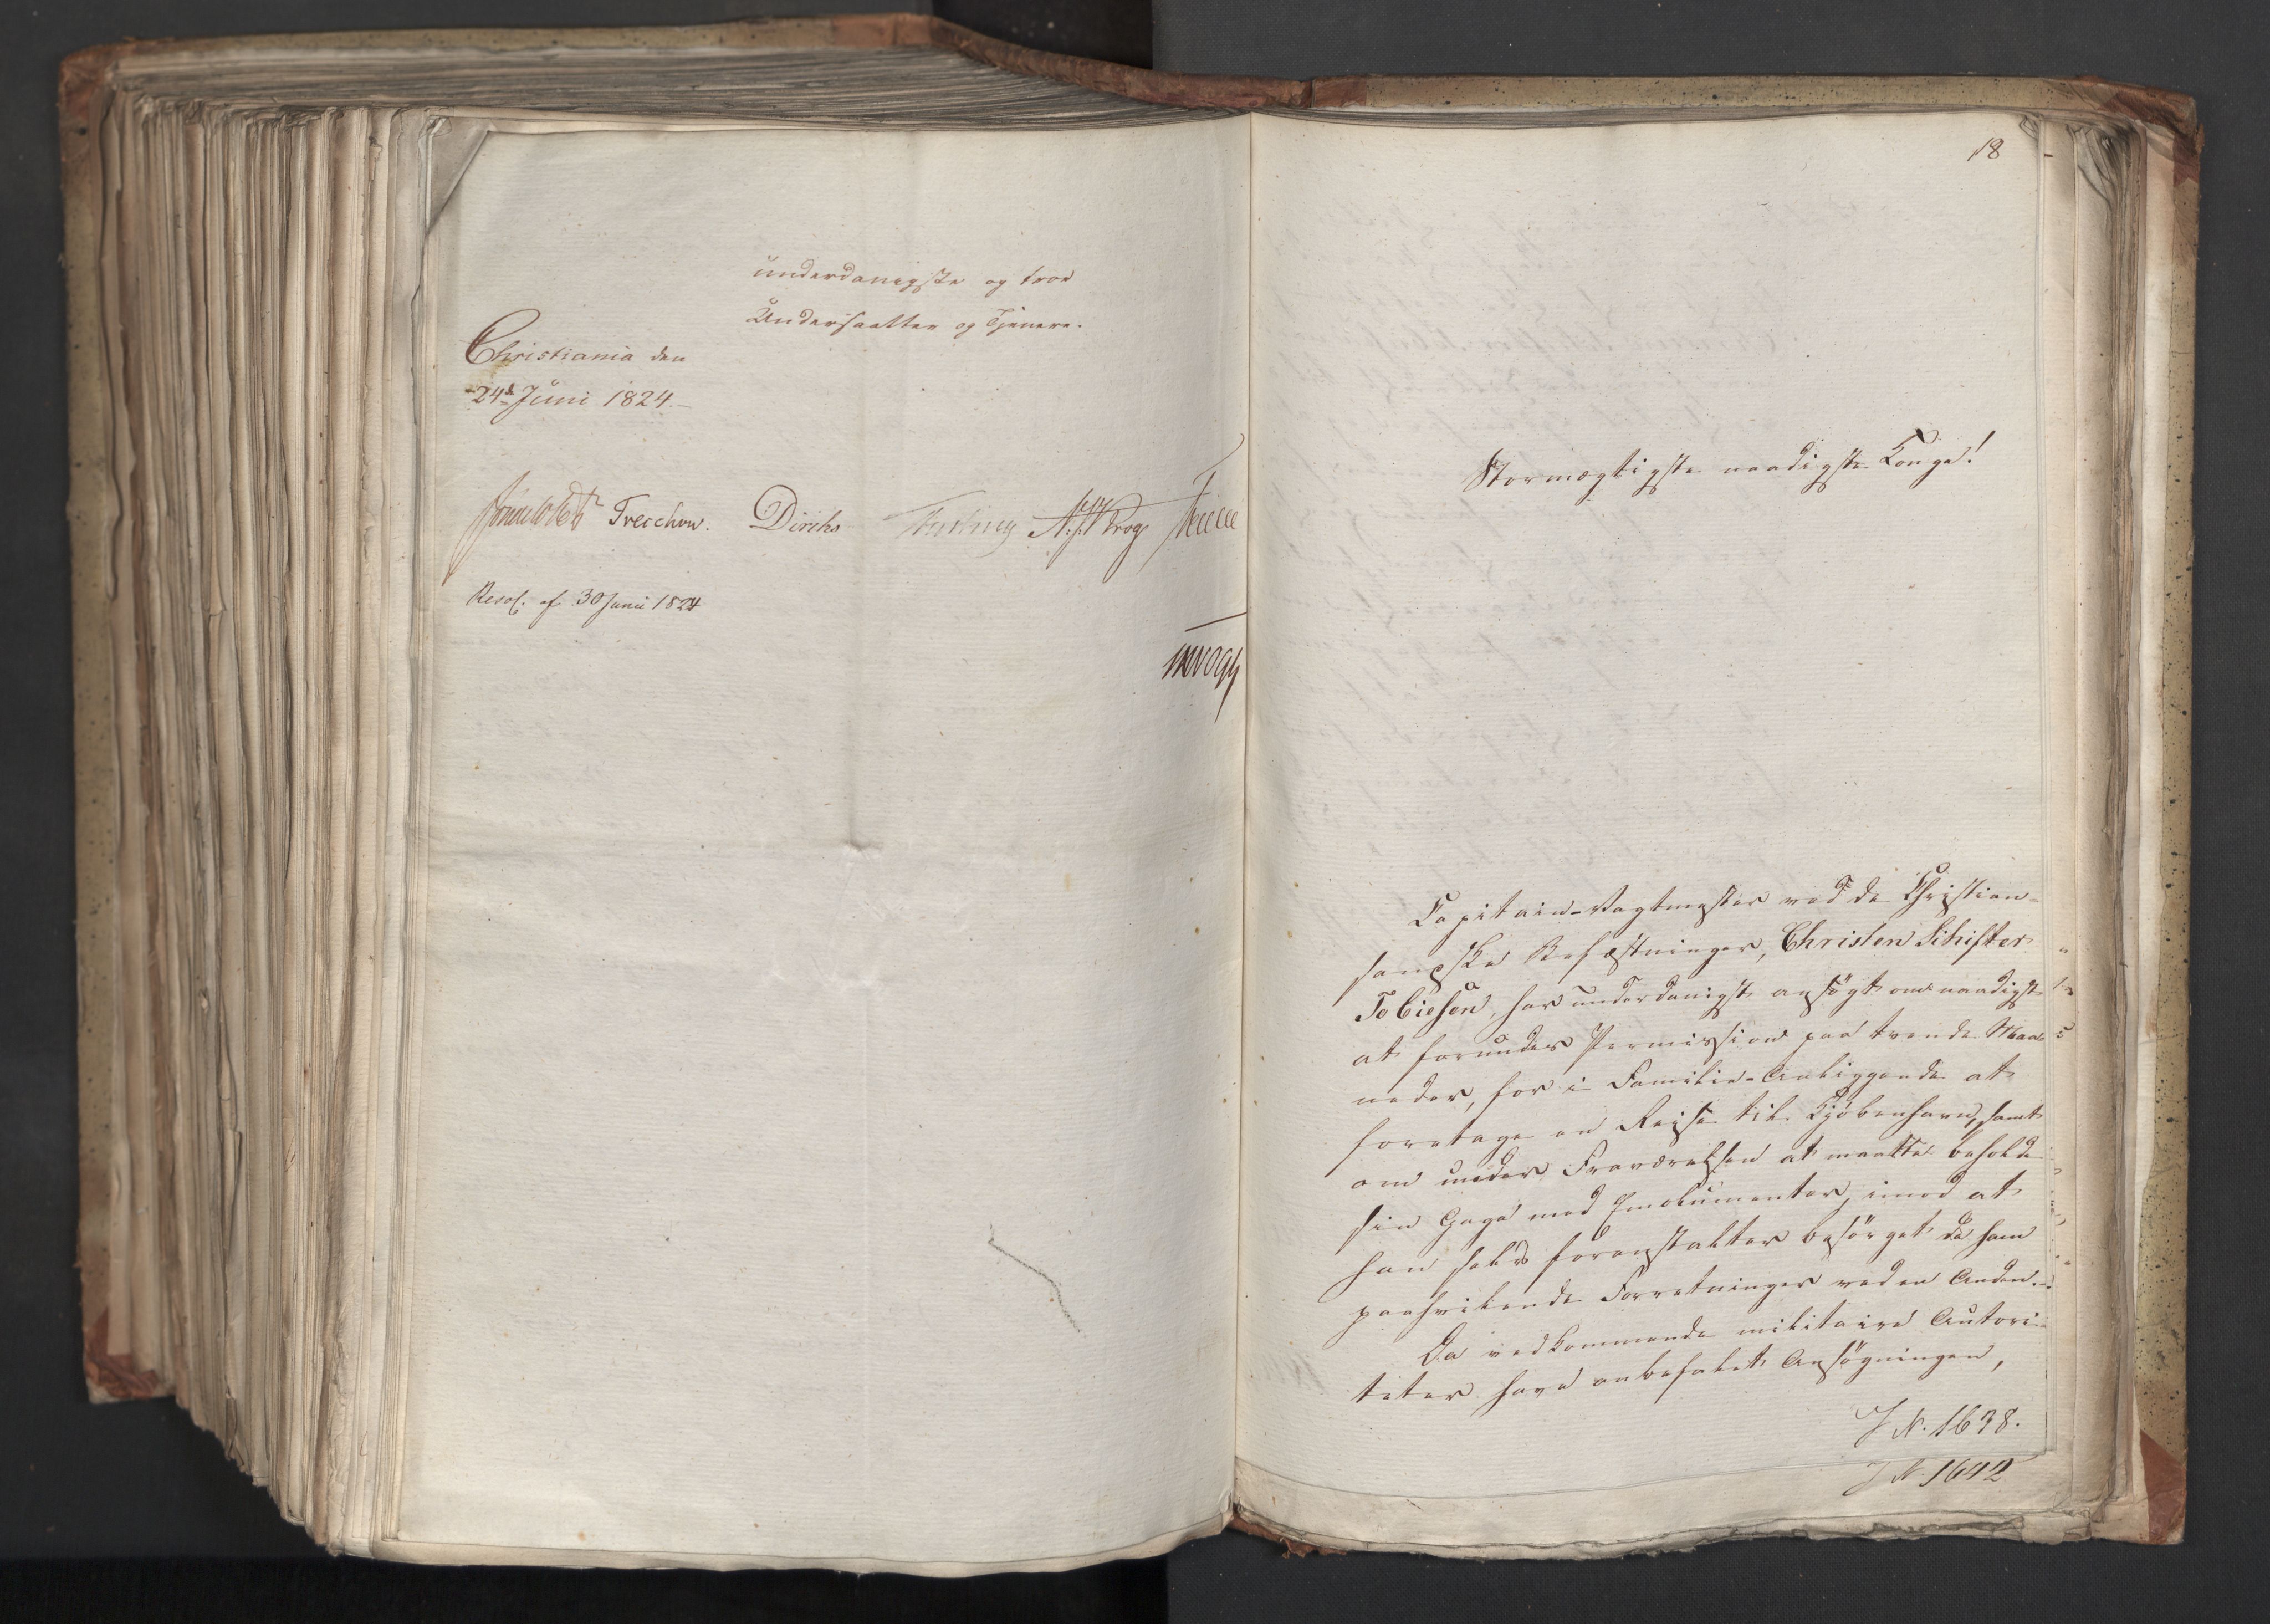 underdanigste og troe
Undersaatter og Tjenere.
Christiania den
24d Juni 1824
Sommerhielm Treschow. Diriks Fasting
Resol. af 30 Junii 1824
18
Stormægtigste naadigste Konge!
Capitain-Vagtmester ved de Christian-
sandske Befæstninger, Christen Schifter
Tobiesen, har underdanigst ansøgt om naadigst
at forundes Permission paa tvende Maa-
neder, for i Familie-Anliggende at
foretage en Reise til Kjøbenhavn, samt
om under Fraværelsen at maatte beholde
sin Gage med Emolumenter, imod at
han selv foranstalter besørget de ham
paahvilende Forretninger ved en Anden.
Da vedkommende militaire Autori-
teter have anbefalet Ansøgningen,
J N. 1638.
J N. 1642